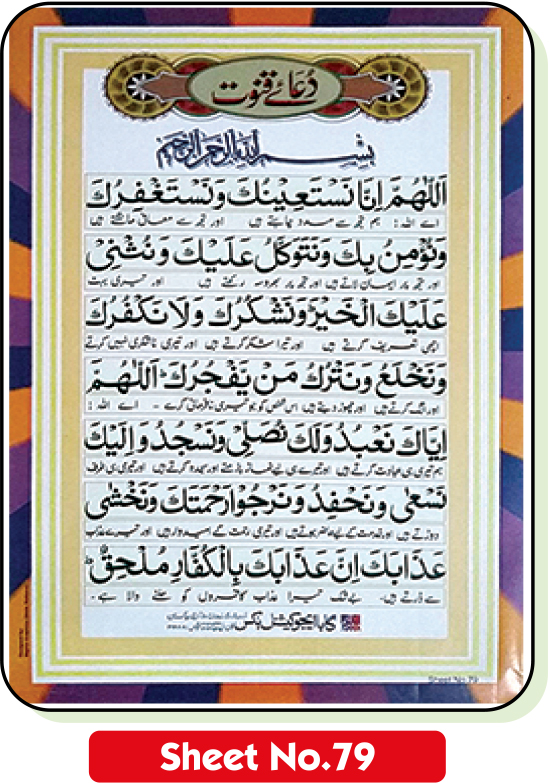 دُعَائے قنوت
بِسْمِ اللهِ الرَّحْمٰنِ الرَّحِيْمِ
اَللّٰهُمَّ اِنَّا نَسْتَعِيْنُكَ وَنَسْتَغْفِرُكَ
اے اللہ! ہم تجھ سے مدد چاہتے ہیں اور تجھ سے معافی مانگتے ہیں
وَنُؤْمِنُ بِكَ وَنَتَوَكَّلُ عَلَيْكَ وَنُثْنِيْ
اور تجھ پر ایمان لاتے ہیں اور تجھ پر بھروسہ رکھتے ہیں اور تیری بہت
عَلَيْكَ الْخَيْرَ وَنَشْكُرُكَ وَلَا نَكْفُرُكَ
اچھی تعریف کرتے ہیں اور تیرا شکر کرتے ہیں اور تیری ناشکری نہیں کرتے
وَنَخْلَعُ وَنَتْرُكُ مَنْ يَّفْجُرُكَ ؕ اَللّٰهُمَّ
اور الگ کرتے ہیں اور چھوڑ دیتے ہیں اس شخص کو جو تیری نافرمانی کرے ۔ اے اللہ!
اِيَّاكَ نَعْبُدُ وَلَكَ نُصَلِّيْ وَنَسْجُدُ وَاِلَيْكَ
ہم تیری ہی عبادت کرتے ہیں اور تیرے ہی لیے نماز پڑھتے اور سجدہ کرتے ہیں اور تیری ہی طرف
نَسْعٰى وَنَحْفِدُ وَنَرْجُوْا رَحْمَتَكَ وَنَخْشٰى
دوڑتے ہیں اور خدمت کے لیے حاضر ہوتے ہیں اور تیری رحمت کے امیدوار ہیں اور تیرے عذاب
عَذَابَكَ اِنَّ عَذَابَكَ بِالْكُفَّارِ مُلْحِقٌ ؕ
سے ڈرتے ہیں۔ بے شک تیرا عذاب کافروں کو ملنے والا ہے۔
بابا ایجوکیشنل بکس
Sheet No.79
Sheet No.79